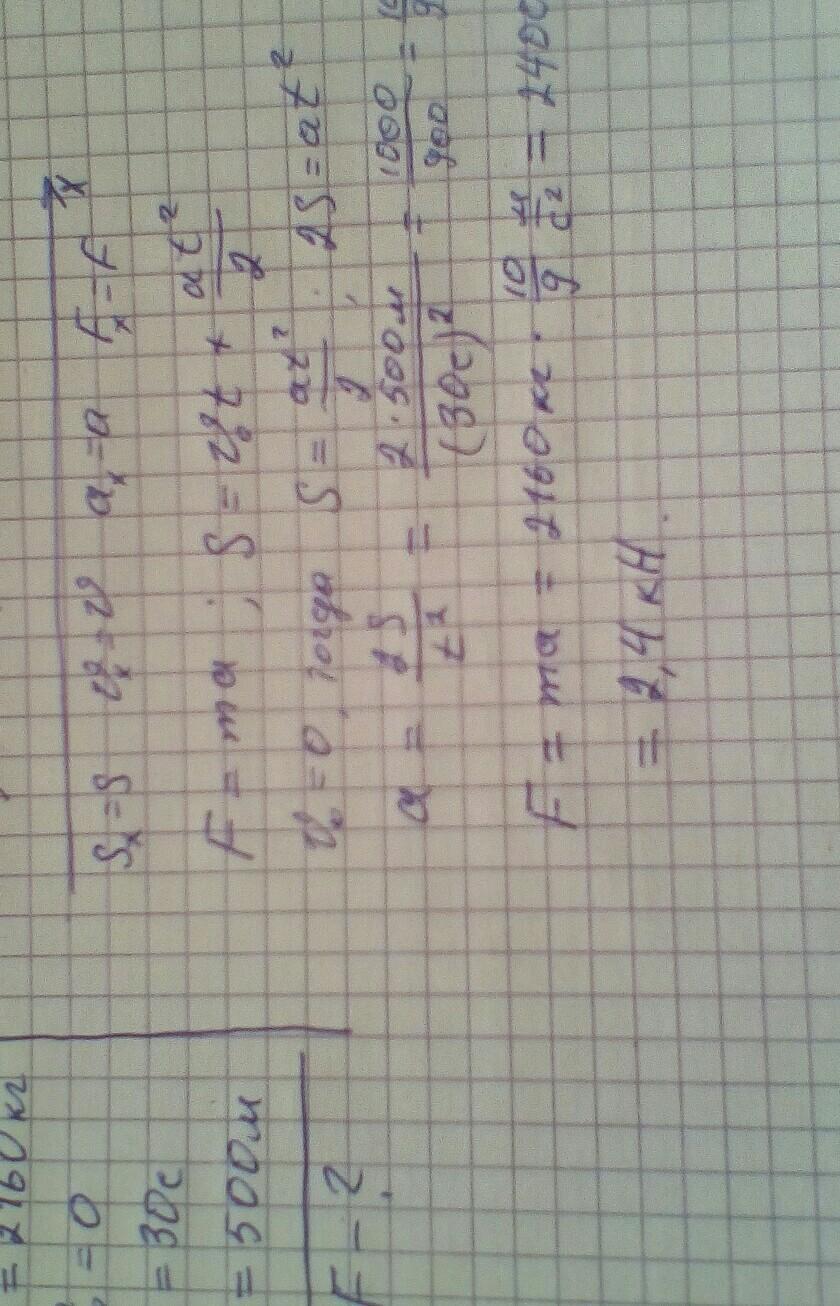 = 2160 кг
= 0
= 30с
= 500м
F - ?
x
Sₓ = S vₓ = v aₓ = a Fₓ = F
F = ma ; S = v₀t + at²/2
v₀ = 0, тогда S = at²/2 ; 2S = at²
a = 2S/t² = 2·500м/(30с)² = 1000/900 =
F = ma = 2160 кг · 10/9 м/с² = 240
= 2,4 кН.